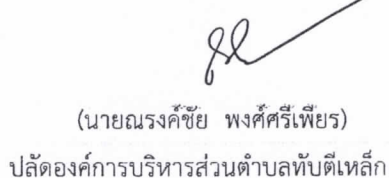 (นายณรงค์ชัย พงศ์ศรีเพียร)
ปลัดองค์การบริหารส่วนตำบลทับตีเหล็ก